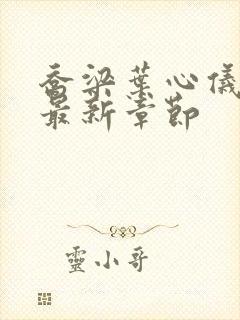 喬梁葉心儀
最新章節
靈小哥